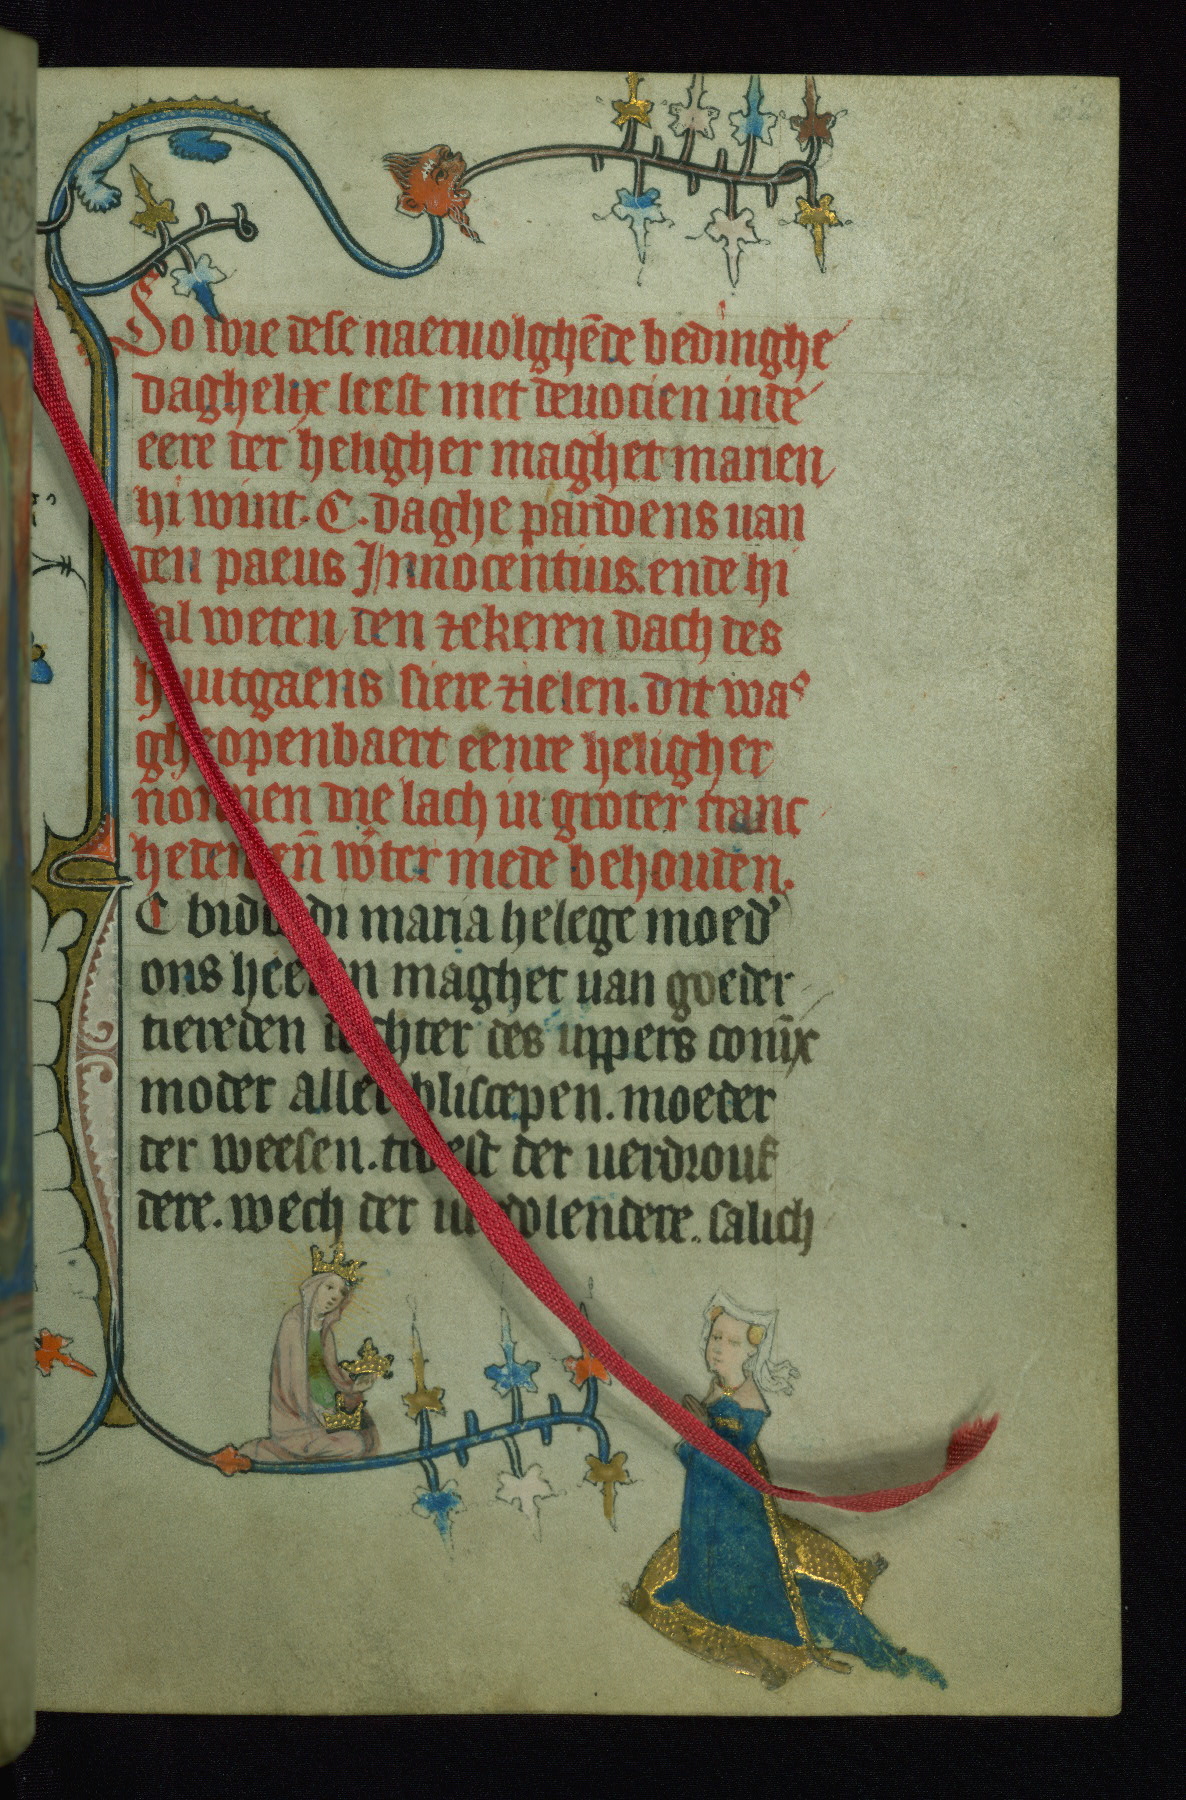 So wie dese naeruolghēde bedinghe
daghelix leest met deuocien inde
eere der heligher maghet marien
hi wint .C. daghe pardoens uan
den paeus Innocentius. ende hi
sal weten den zekeren dach des
huutgaens siere zielen. dit was
gheopenbaert eenre heligher
nonnen die lach in groter cranc
heden eñ wter mede behouden.
C bidde di maria helege moed'
ons heeren maghet uan goeder
tiereden dochter des uppers conīx
moder aller bliscepen. moeder
der weesen. troest der uerdrouf
dere. wech der uerdolendere. salich